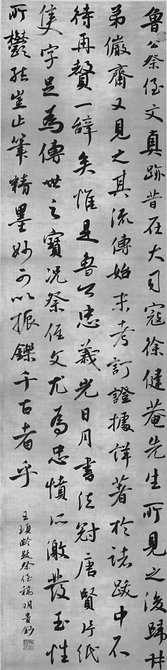 魯公祭侄文真跡昔在大司寇徐健菴先生所見之後歸
弟儼齋又見之其流傳始末考訂證據詳著於諸跋中不
待再贅一辭矣惟是魯公忠義光日月書法冠唐賢片紙
隻字足為傳世之寶况祭侄文尤為忠憤所激發至性
所鬱結豈止筆精墨妙可以振鑠千古者乎
王頊齡跋祭侄稿